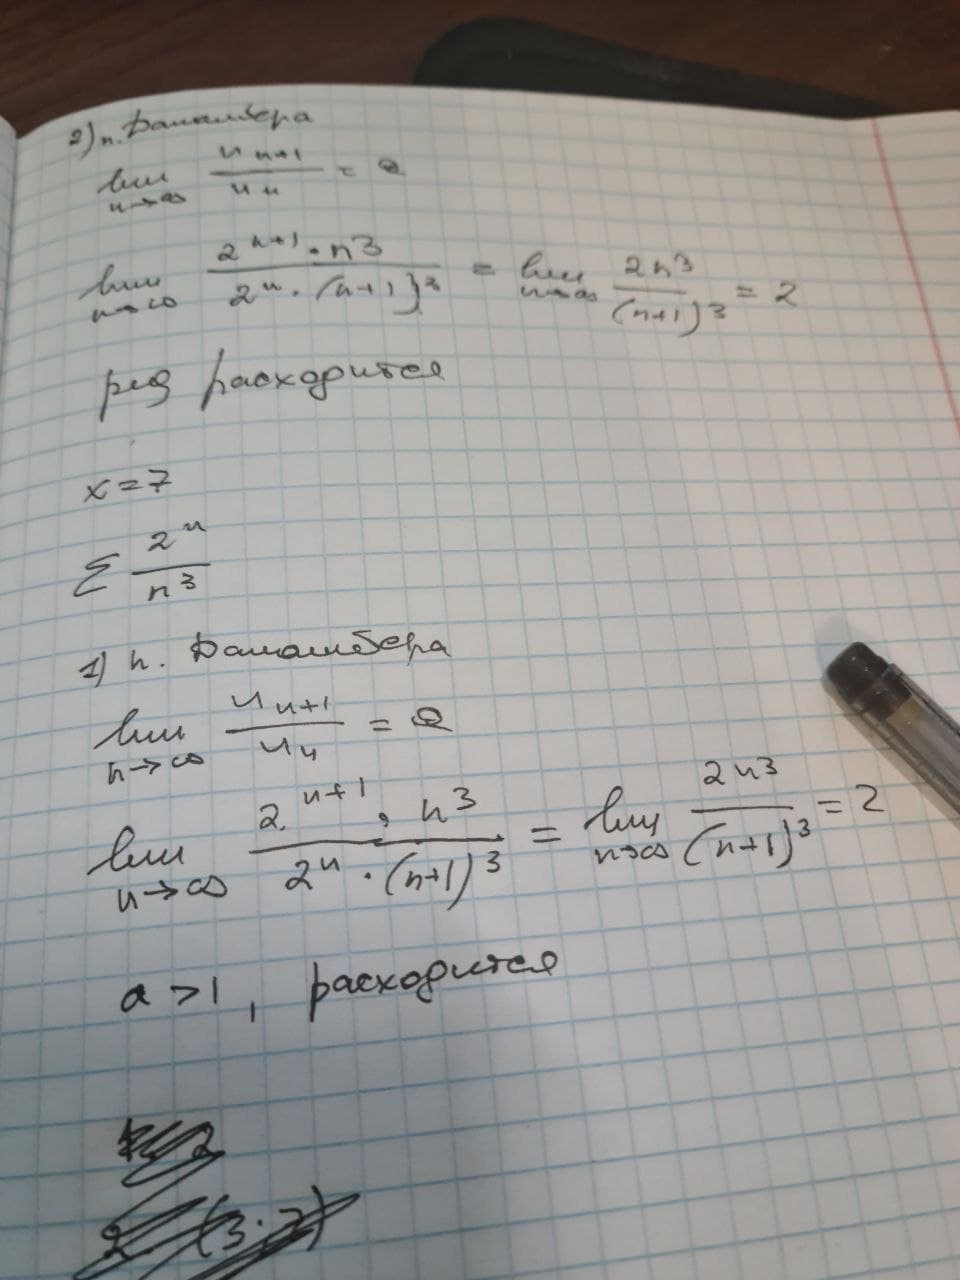 2) п. Даламбера
lim n→∞ u n+1 / u n = a
lim n→∞ 2^n+1 · n^3 / 2^n · (n+1)^3 = lim n→∞ 2n^3 / (n+1)^3 = 2
ряд расходится
x = 7
Σ 2^n / n^3
1) п. Даламбера
lim n→∞ u n+1 / u n = a
lim n→∞ 2^n+1 · n^3 / 2^n · (n+1)^3 = lim n→∞ 2n^3 / (n+1)^3 = 2
a > 1, расходится